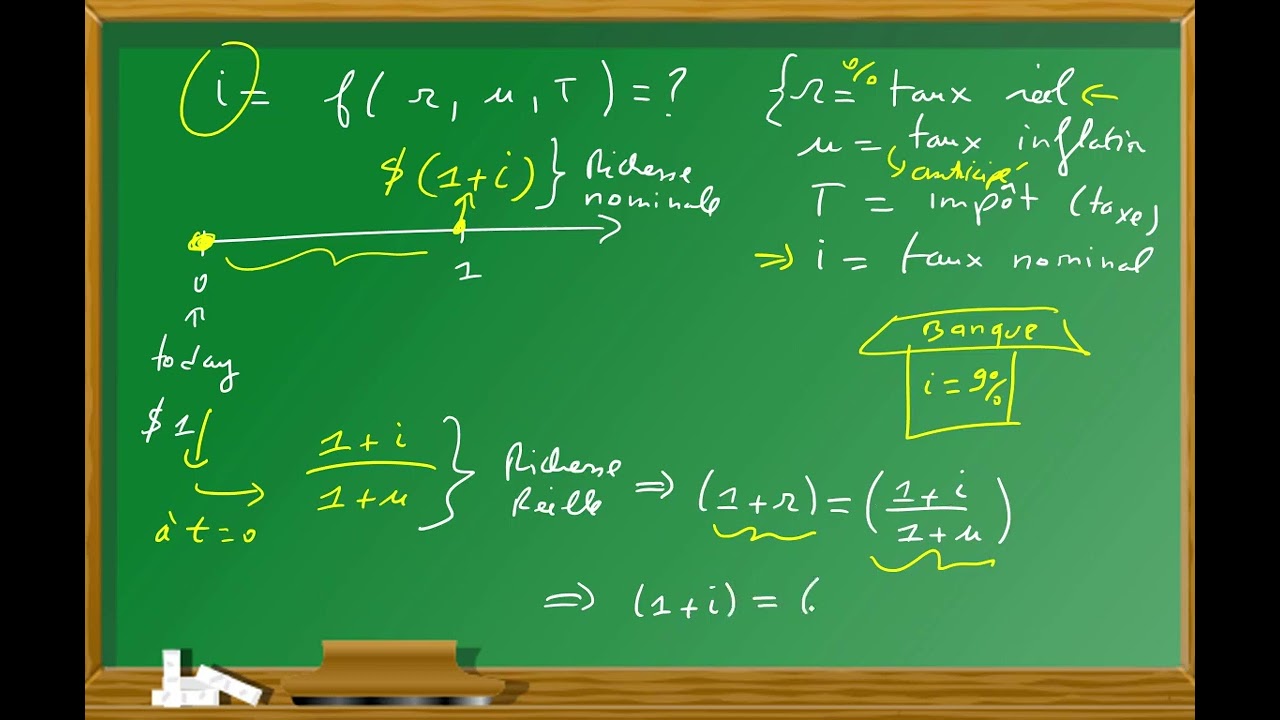 i = f( r, u, T ) = ?
{ r = % taux réel ←
u = taux inflation
↳ anticipé
T = impôt (taxe)
⇒ i = taux nominal
$ (1+i) } Richesse
nominale
0
1
↑
today
$1
à t=0
Banque
i = 9%
1+i
1+u
} Richesse
Réelle
⇒ (1+r) = (1+i / 1+u)
⇒ (1+i) = (